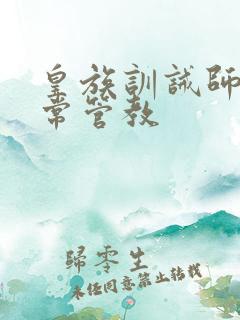 皇族訓誡師
常管教
歸零生
未经同意禁止转载